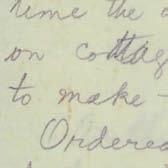 time the
on cottag
to make -
Ordered